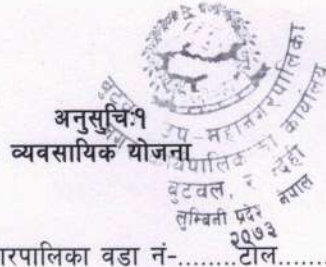 अनुसुचि:१
व्यवसायिक योजना
उप-महानगरपालिका
कार्यालय
बुटवल,
लुम्बिनी प्रदेश
नेपाल
२०७३
ारपालिका वडा नं-........टोल.......